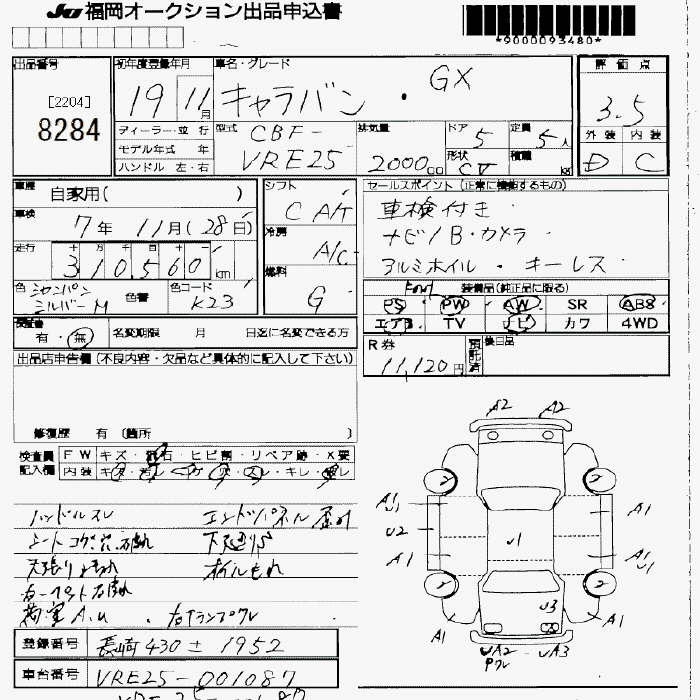 JU 福岡オートオークション出品申込書
*9000093480*
出品番号 初年度登録年月 車名・グレード 評価点
[2204]
8284
19 11月 キャラバン・GX 3.5
外装 内装
D C
ディーラー・並行 型式 CBF-VRE25 排気量 2000cc ドア 5 定員 5人
モデル年式 年
ハンドル 左・右 形状 CV 積載 kg
車歴 自家用( ) シフト C A/T セールスポイント(正常に機能するもの)
車検 7年 11月(28日) 車検付き
冷房 A/C ナビ/B・カメラ
走行 十 万 千 百 十 一
310,560 km アルミホイル・キーレス
燃料 G
色 シャンパンシルバーM 色番 色コード K23
装備品(純正品に限る)
PS PW AW SR ABS
エアB TV ナビ カワ 4WD
保証書 有・無 名変期限 月 日迄に名変できる方
R券 11,120円 預託済 後日品
出品店申告欄(不良内容・欠品など具体的に記入して下さい)
修復歴 有 (箇所 )
検査員記入欄 FW キズ・飛石・ヒビ割・リペア跡・X要
内装
ハンドルスレ エンドパネル歪み
シートコゲ穴破れ 下廻りサビ
天張りよごれ オイルもれ
カーペット破れ
荷室A.U 右ランプワレ
登録番号 長崎 430 ± 1952
車台番号 VRE25-001087
A2 A2
A1 U1 A1
U2 U1
A1 A1 U1
U3
A1 A1
UA2 UA3
Pワレ